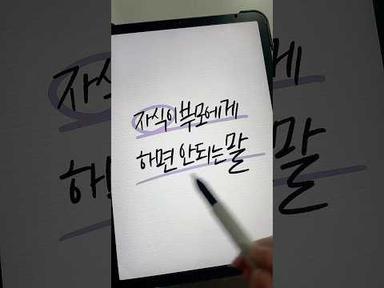 자식이 부모에게
하면 안되는 말